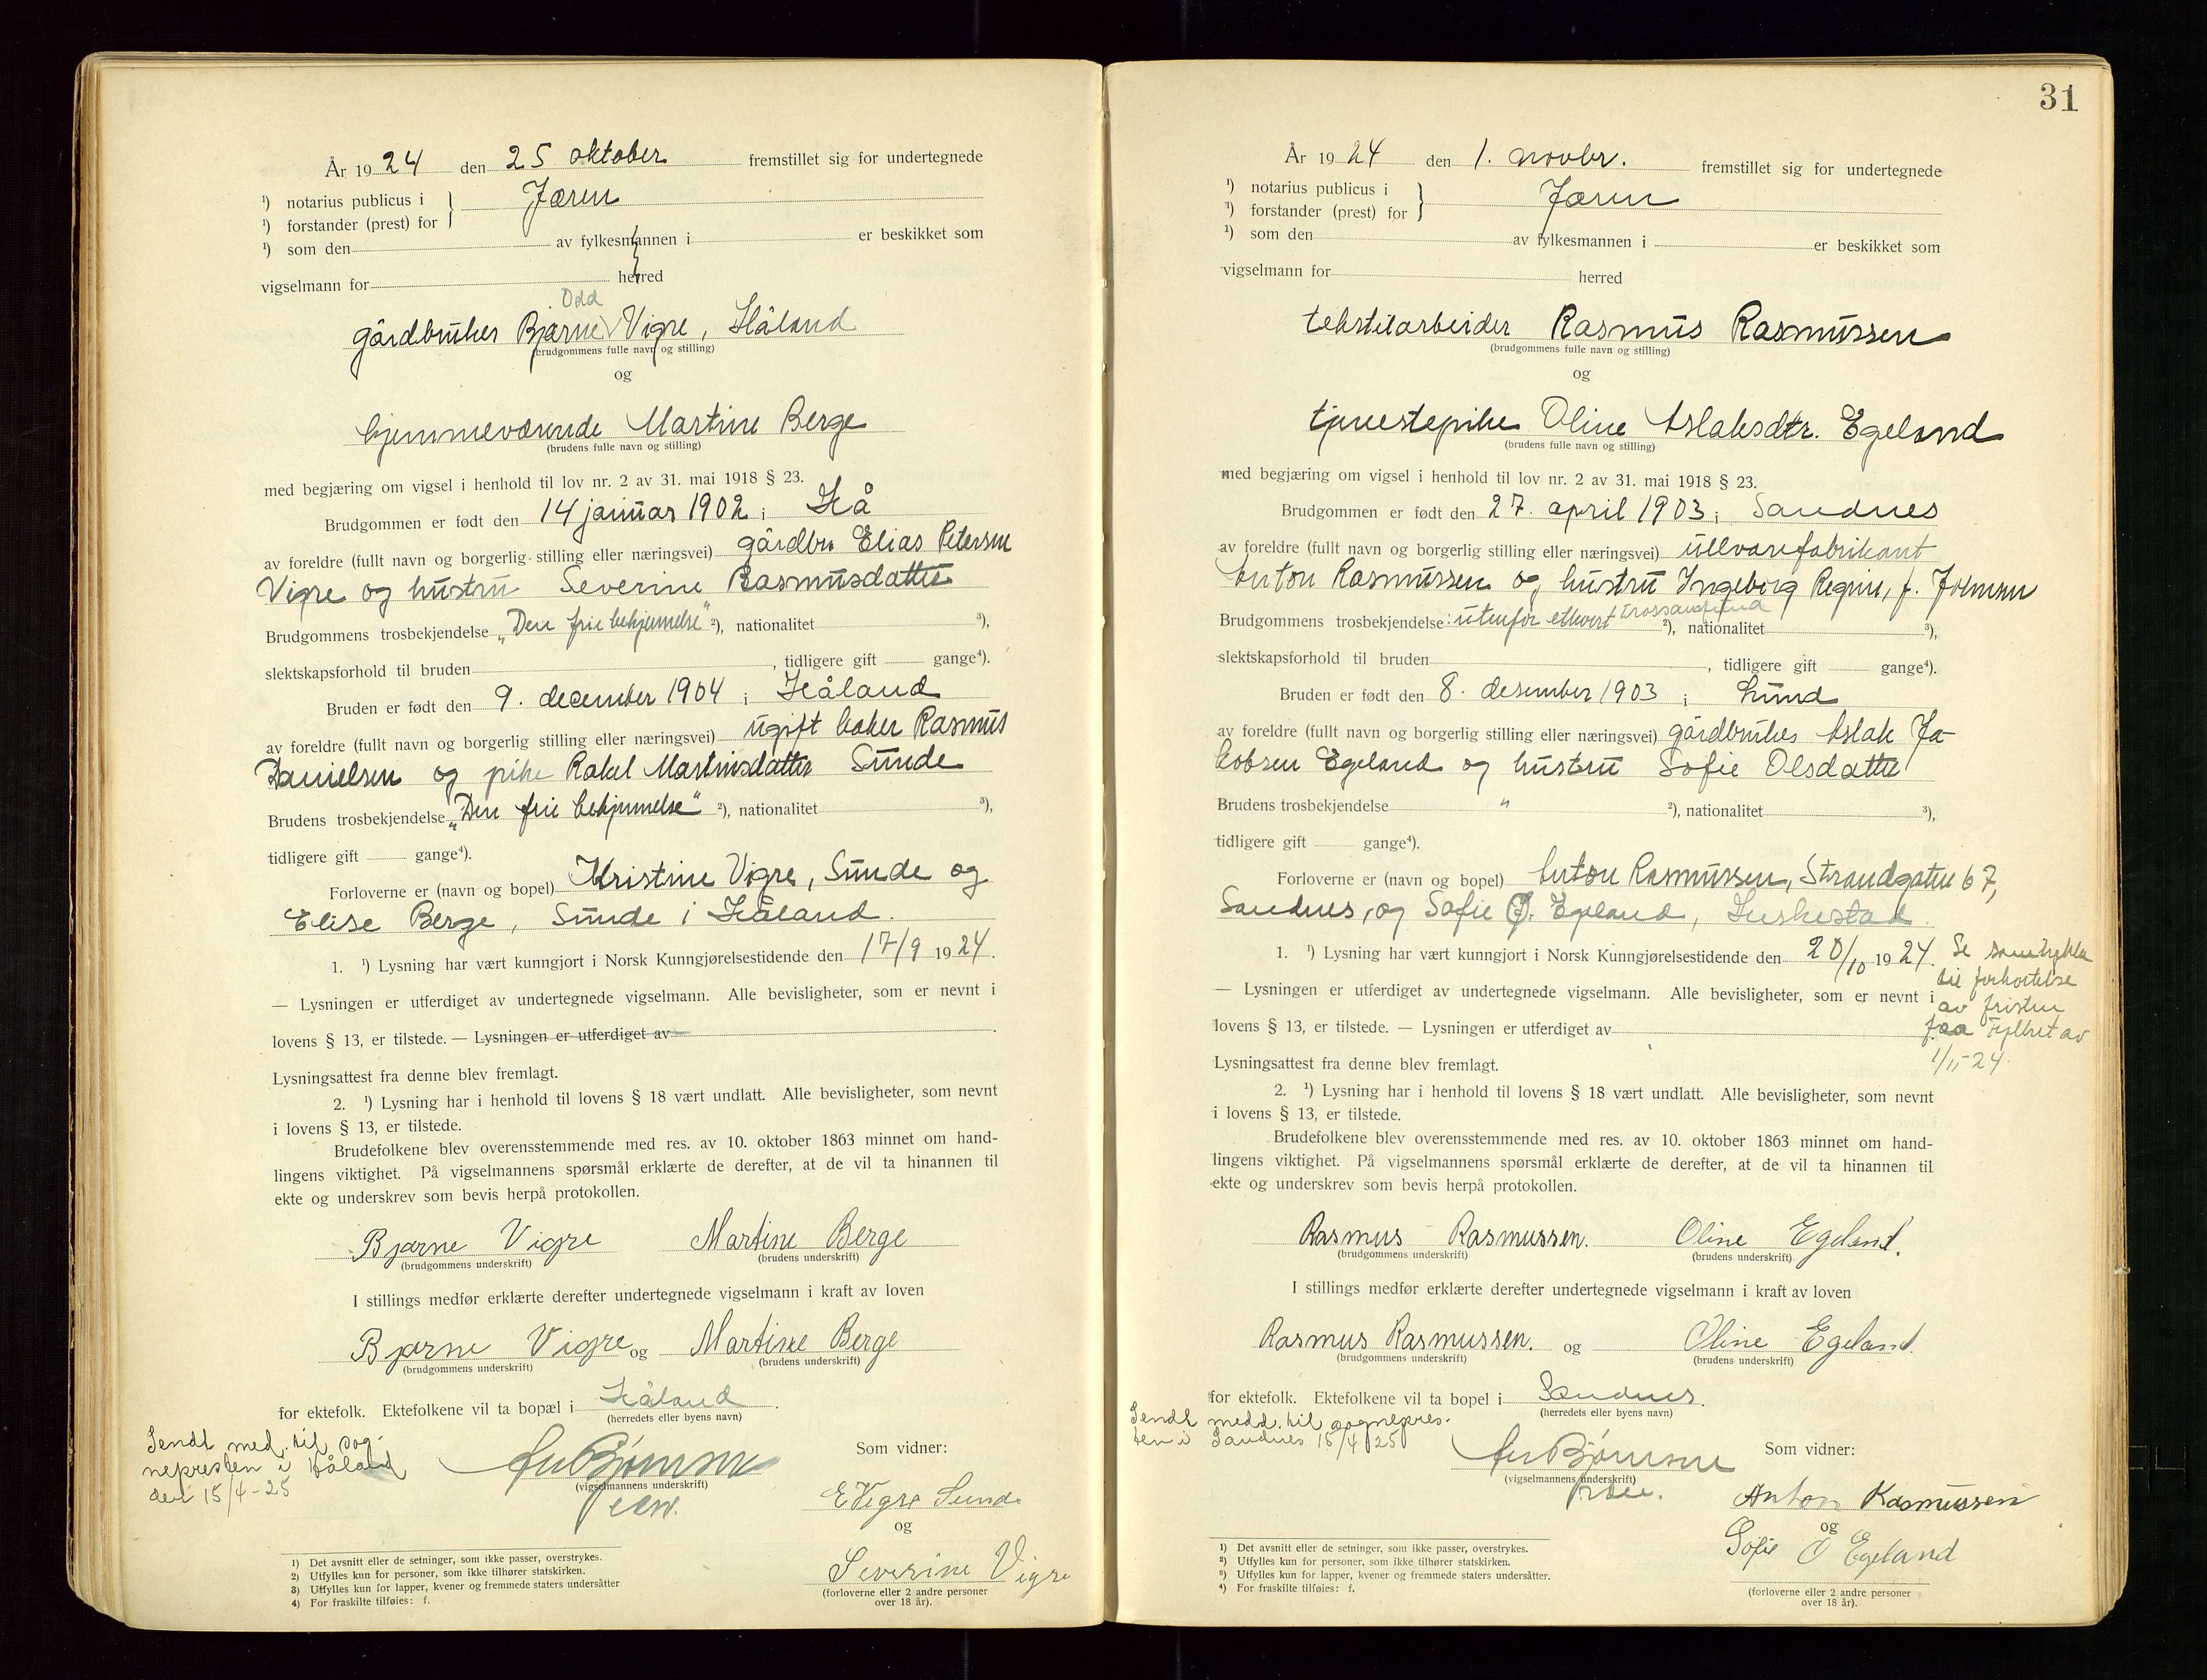 År 1924 den 25 oktober fremstillet sig for undertegnede
¹) notarius publicus i } Jæren
¹) forstander (prest) for
¹) som den av fylkesmannen i er beskikket som
vigselmann for herred
Odd
gårdbruker Bjarne Vigre, Håland
(brudgommens fulle navn og stilling)
og
hjemmeværende Martine Berge
(brudens fulle navn og stilling)
med begjæring om vigsel i henhold til lov nr. 2 av 31. mai 1918 § 23.
Brudgommen er født den 14 januar 1902 i Hå
av foreldre (fullt navn og borgerlig stilling eller næringsvei) gårdbr Elias Petersen
Vigre og hustru Severine Rasmusdatter
Brudgommens trosbekjendelse „Den frie bekjennelse" ²), nationalitet ³),
slektskapsforhold til bruden , tidligere gift gange⁴).
Bruden er født den 9. december 1904 i Håland
av foreldre (fullt navn og borgerlig stilling eller næringsvei) ugift baker Rasmus
Danielsen og pike Rakel Martinsdatter Sunde
Brudens trosbekjendelse „Den frie bekjennelse" ²), nationalitet ³),
tidligere gift gange⁴).
Forloverne er (navn og bopel) Kristine Vigre, Sunde og
Elise Berge, Sunde i Håland.
1. ¹) Lysning har vært kunngjort i Norsk Kunngjørelsestidende den 17/9 1924.
— Lysningen er utferdiget av undertegnede vigselmann. Alle bevisligheter, som er nevnt i
lovens § 13, er tilstede. — Lysningen er utferdiget av
Lysningsattest fra denne blev fremlagt.
2. ¹) Lysning har i henhold til lovens § 18 vært undlatt. Alle bevisligheter, som nevnt
i lovens § 13, er tilstede.
Brudefolkene blev overensstemmende med res. av 10. oktober 1863 minnet om hand-
lingens viktighet. På vigselmannens spørsmål erklærte de derefter, at de vil ta hinannen til
ekte og underskrev som bevis herpå protokollen.
Bjarne Vigre Martine Berge
(brudgommens underskrift) (brudens underskrift)
I stillings medfør erklærte derefter undertegnede vigselmann i kraft av loven
Bjarne Vigre og Martine Berge
(brudgommens underskrift) (brudens underskrift)
for ektefolk. Ektefolkene vil ta bopæl i Håland.
(herredets eller byens navn)
Sendt med. til sog-
nepresten i Håland
den 15/4-25
(vigselmannens underskrift)
Som vidner:
E Vigre Sunde
og
Severine Vigre
(forloverne eller 2 andre personer
over 18 år).
1) Det avsnitt eller de setninger, som ikke passer, overstrykes.
2) Utfylles kun for personer, som ikke tilhører statskirken.
3) Utfylles kun for lapper, kvener og fremmede staters undersåtter
4) For fraskilte tilføies: f.
31
År 1924 den 1. novbr. fremstillet sig for undertegnede
¹) notarius publicus i } Jæren
¹) forstander (prest) for
¹) som den av fylkesmannen i er beskikket som
vigselmann for herred
tekstilarbeider Rasmus Rasmussen
(brudgommens fulle navn og stilling)
og
tjenestepike Oline Aslaksdtr. Egeland
(brudens fulle navn og stilling)
med begjæring om vigsel i henhold til lov nr. 2 av 31. mai 1918 § 23.
Brudgommen er født den 27. april 1903 i Sandnes
av foreldre (fullt navn og borgerlig stilling eller næringsvei) ullvarefabrikant
Anton Rasmussen og hustru Ingeborg Regine, f.
Brudgommens trosbekjendelse: utenfor ethvert trossamfund ²), nationalitet ³),
slektskapsforhold til bruden , tidligere gift gange⁴).
Bruden er født den 8. desember 1903 i Lund
av foreldre (fullt navn og borgerlig stilling eller næringsvei) gårdbruker Aslak Ja-
kobsen Egeland og hustru Sofie Olsdatter
Brudens trosbekjendelse " ²), nationalitet ³),
tidligere gift gange⁴).
Forloverne er (navn og bopel) Anton Rasmussen, Strandgaten 67,
Sandnes, og Sofie O. Egeland,
1. ¹) Lysning har vært kunngjort i Norsk Kunngjørelsestidende den 20/10 1924.
— Lysningen er utferdiget av undertegnede vigselmann. Alle bevisligheter, som er nevnt i
lovens § 13, er tilstede. — Lysningen er utferdiget av
Se samtykke
til forkortelse
av fristen
fra Fylket av
1/11-24.
Lysningsattest fra denne blev fremlagt.
2. ¹) Lysning har i henhold til lovens § 18 vært undlatt. Alle bevisligheter, som nevnt
i lovens § 13, er tilstede.
Brudefolkene blev overensstemmende med res. av 10. oktober 1863 minnet om hand-
lingens viktighet. På vigselmannens spørsmål erklærte de derefter, at de vil ta hinannen til
ekte og underskrev som bevis herpå protokollen.
Rasmus Rasmussen. Oline Egeland.
(brudgommens underskrift) (brudens underskrift)
I stillings medfør erklærte derefter undertegnede vigselmann i kraft av loven
Rasmus Rasmussen. og Oline Egeland.
(brudgommens underskrift) (brudens underskrift)
for ektefolk. Ektefolkene vil ta bopel i Sandnes.
(herredets eller byens navn)
Sendt medd. til sognepres-
ten i Sandnes 15/4 25
(vigselmannens underskrift)
Som vidner:
Anton Rasmussen
og
Sofie O Egeland
(forloverne eller 2 andre personer
over 18 år).
1) Det avsnitt eller de setninger, som ikke passer, overstrykes.
2) Utfylles kun for personer, som ikke tilhører statskirken.
3) Utfylles kun for lapper, kvener og fremmede staters undersåtter.
4) For fraskilte tilføies: f.